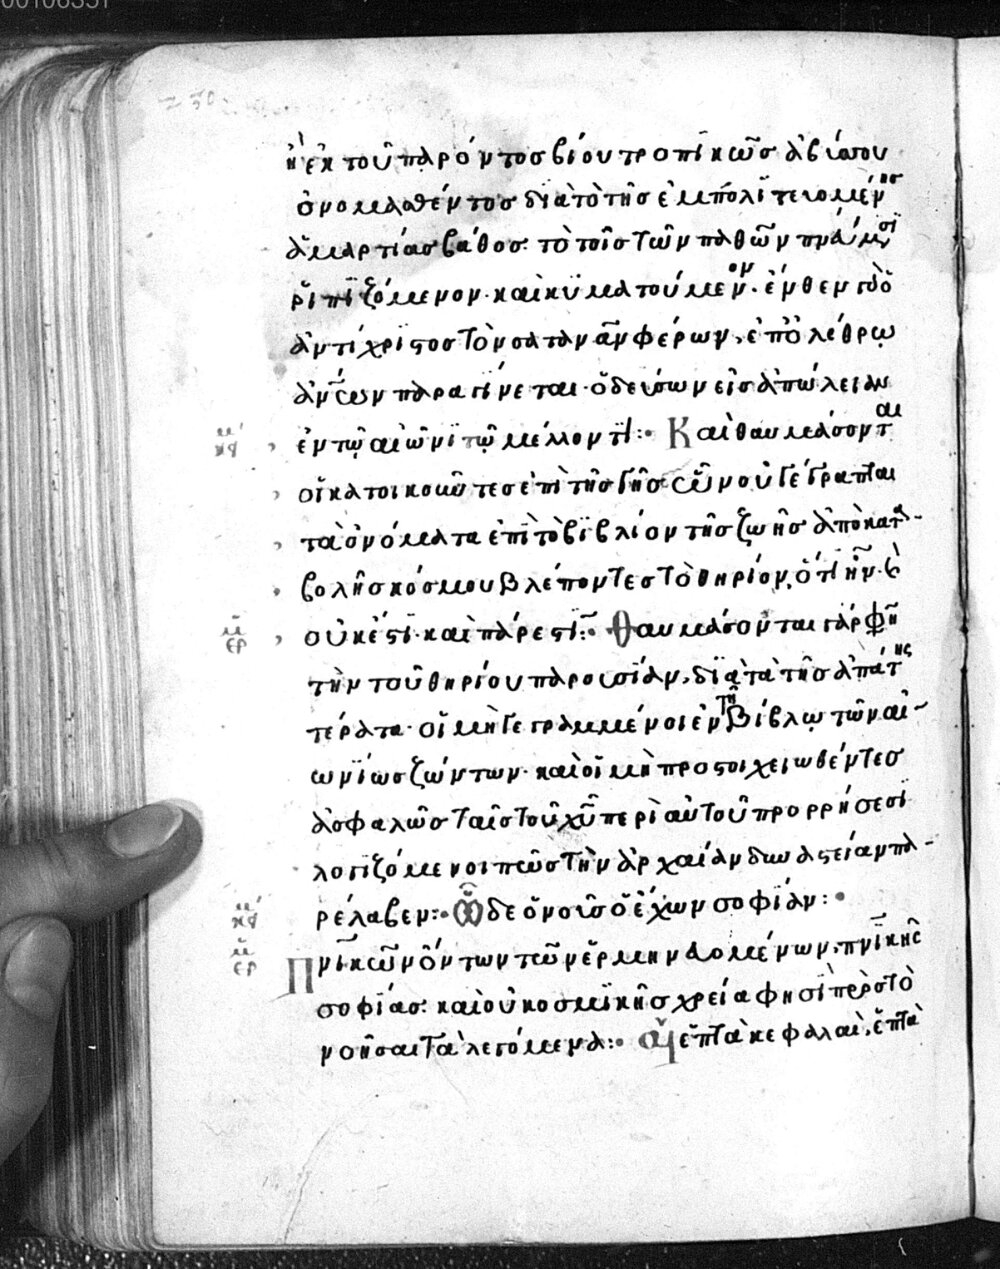 ἢ ἐκ τοῦ παρόντος βίου τροπικῶς ἀβύσσου
ὀνομασθέντος διὰ τὸ τῆς ἐμπολιτευομένης
ἁμαρτίας βάθος· τὸ τοῖς τῶν παθῶν πνά(μα)σι
ῥιπιζόμενον· καὶ κυματούμενον· ἔνθεν γὰρ ὁ
ἀντίχριστος τὸν σατὰν ἀναφέρων, ἐπ' ὀλέθρῳ
ἀν(θρώπ)ων παραγίνεται· ὁ δεύσων εἰς ἀπώλειαν
ἐν τῷ αἰῶνι τῷ μέλλοντι:· Καὶ θαυμάσονται
οἱ κατοικοῦντες ἐπὶ τῆς γῆς ὧν οὐ γέγραπται
τὰ ὀνόματα ἐπὶ τὸ βιβλίον τῆς ζωῆς ἀπὸ κατα-
βολῆς κόσμου βλέποντες τὸ θηρίον, ὅτι ἦν· κ(αὶ)
οὐκ ἔστι· καὶ πάρεστι:· Θαυμάσονται γάρ φη(σι)
τὴν τοῦ θηρίου παρουσίαν, διὰ τὰ τῆς ἀπάτης
τέρατα· οἱ μὴ γεγραμμένοι ἐν τῇ βίβλῳ τῶν αἰ-
ωνίως ζώντων· καὶ οἱ μὴ προστοιχειωθέντες
ἀσφαλῶς ταῖς τοῦ χ(ριστο)ῦ περὶ αὐτοῦ προρρήσεσι
λογιζόμενοι πῶς τὴν ἀρχαίαν δυναστείαν πα-
ρέλαβεν:· Ὧδε ὁ νοῦς ὁ ἔχων σοφίαν:·
Πν(ευματ)ικῶν ὄντων τῶν ἑρμηνευομένων, πν(ευματ)ικῆς
σοφίας· καὶ οὐ κοσμικῆς χρεία φησὶ πρὸς τὸ
νοῆσαι τὰ λεγόμενα:· αἱ ἑπτὰ κεφαλαὶ, ἑπτὰ